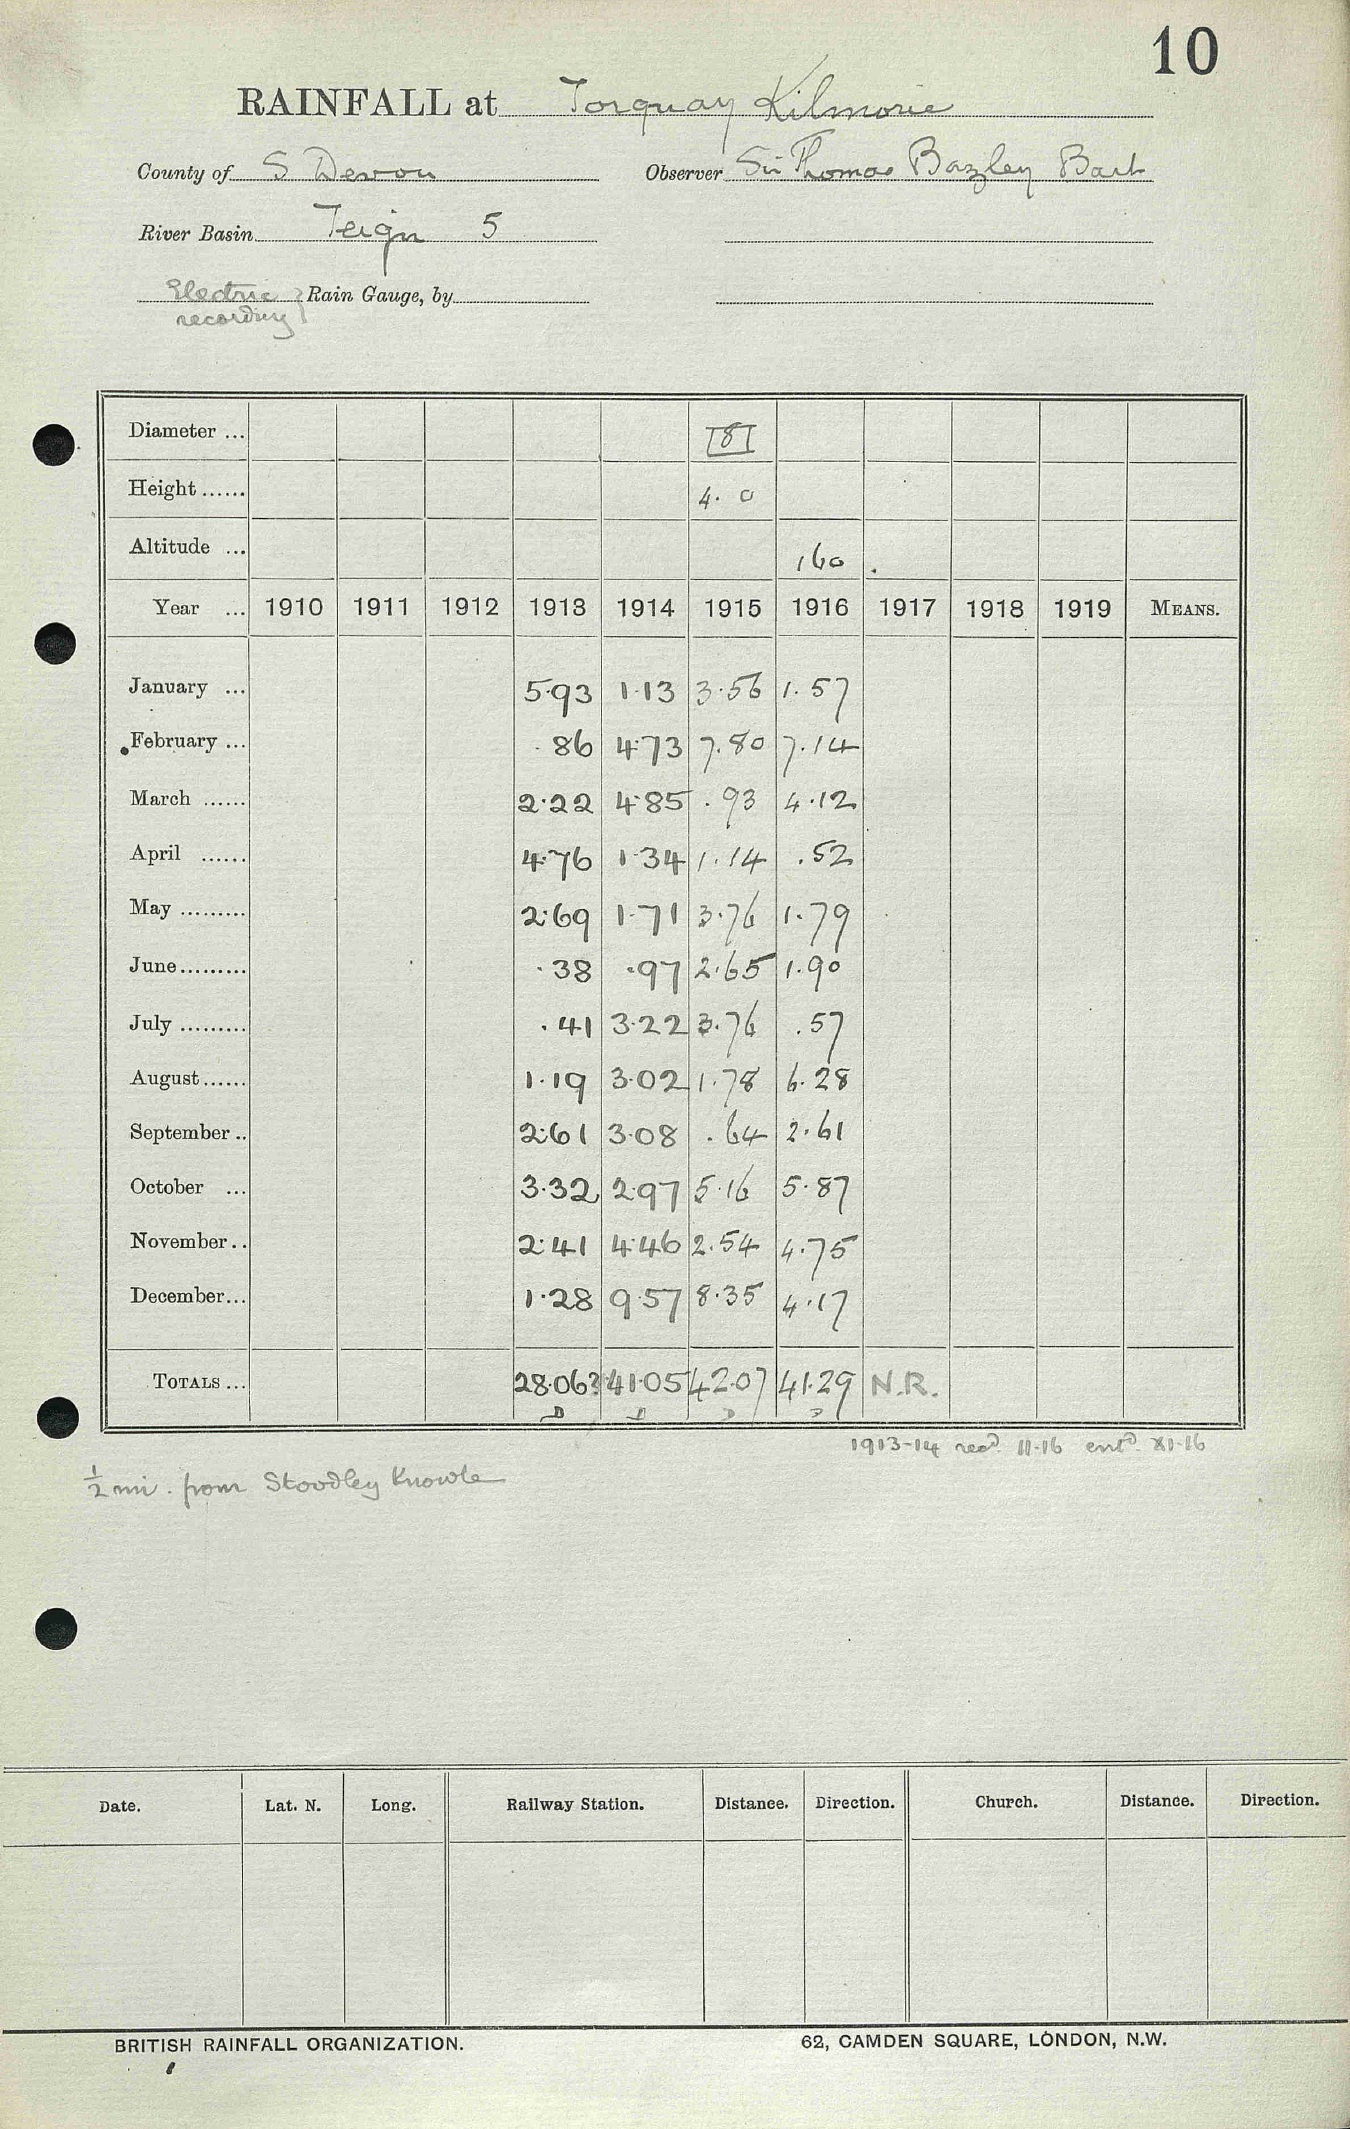 10
RAINFALL at Torquay Kilmorie
County of S Devon Observer Sir Thomas Bazley Bart
River Basin Teign 5
Electric recording } Rain Gauge, by
Diameter ... 8
Height ...... 4. 0
Altitude ... 160 .
Year ... 1910 1911 1912 1913 1914 1915 1916 1917 1918 1919 MEANS.
January ... 5.93 1.13 3.56 1.57
February ... .86 4.73 7.80 7.14
March ...... 2.22 4.85 .93 4.12
April ...... 4.76 1.34 1.14 .52
May ......... 2.69 1.71 3.76 1.79
June......... .38 .97 2.65 1.90
July ......... .41 3.22 3.76 .57
August...... 1.19 3.02 1.78 6.28
September .. 2.61 3.08 .64 2.61
October ... 3.32 2.97 5.16 5.87
November.. 2.41 4.46 2.54 4.75
December... 1.28 9.57 8.35 4.17
TOTALS ... 28.06? 41.05 42.07 41.29 N.R.
1913-14 recd. 11.16 entd. XI.16
½ mi. from Stoodley Knowle
Date. Lat. N. Long. Railway Station. Distance. Direction. Church. Distance. Direction.
BRITISH RAINFALL ORGANIZATION. 62, CAMDEN SQUARE, LONDON, N.W.